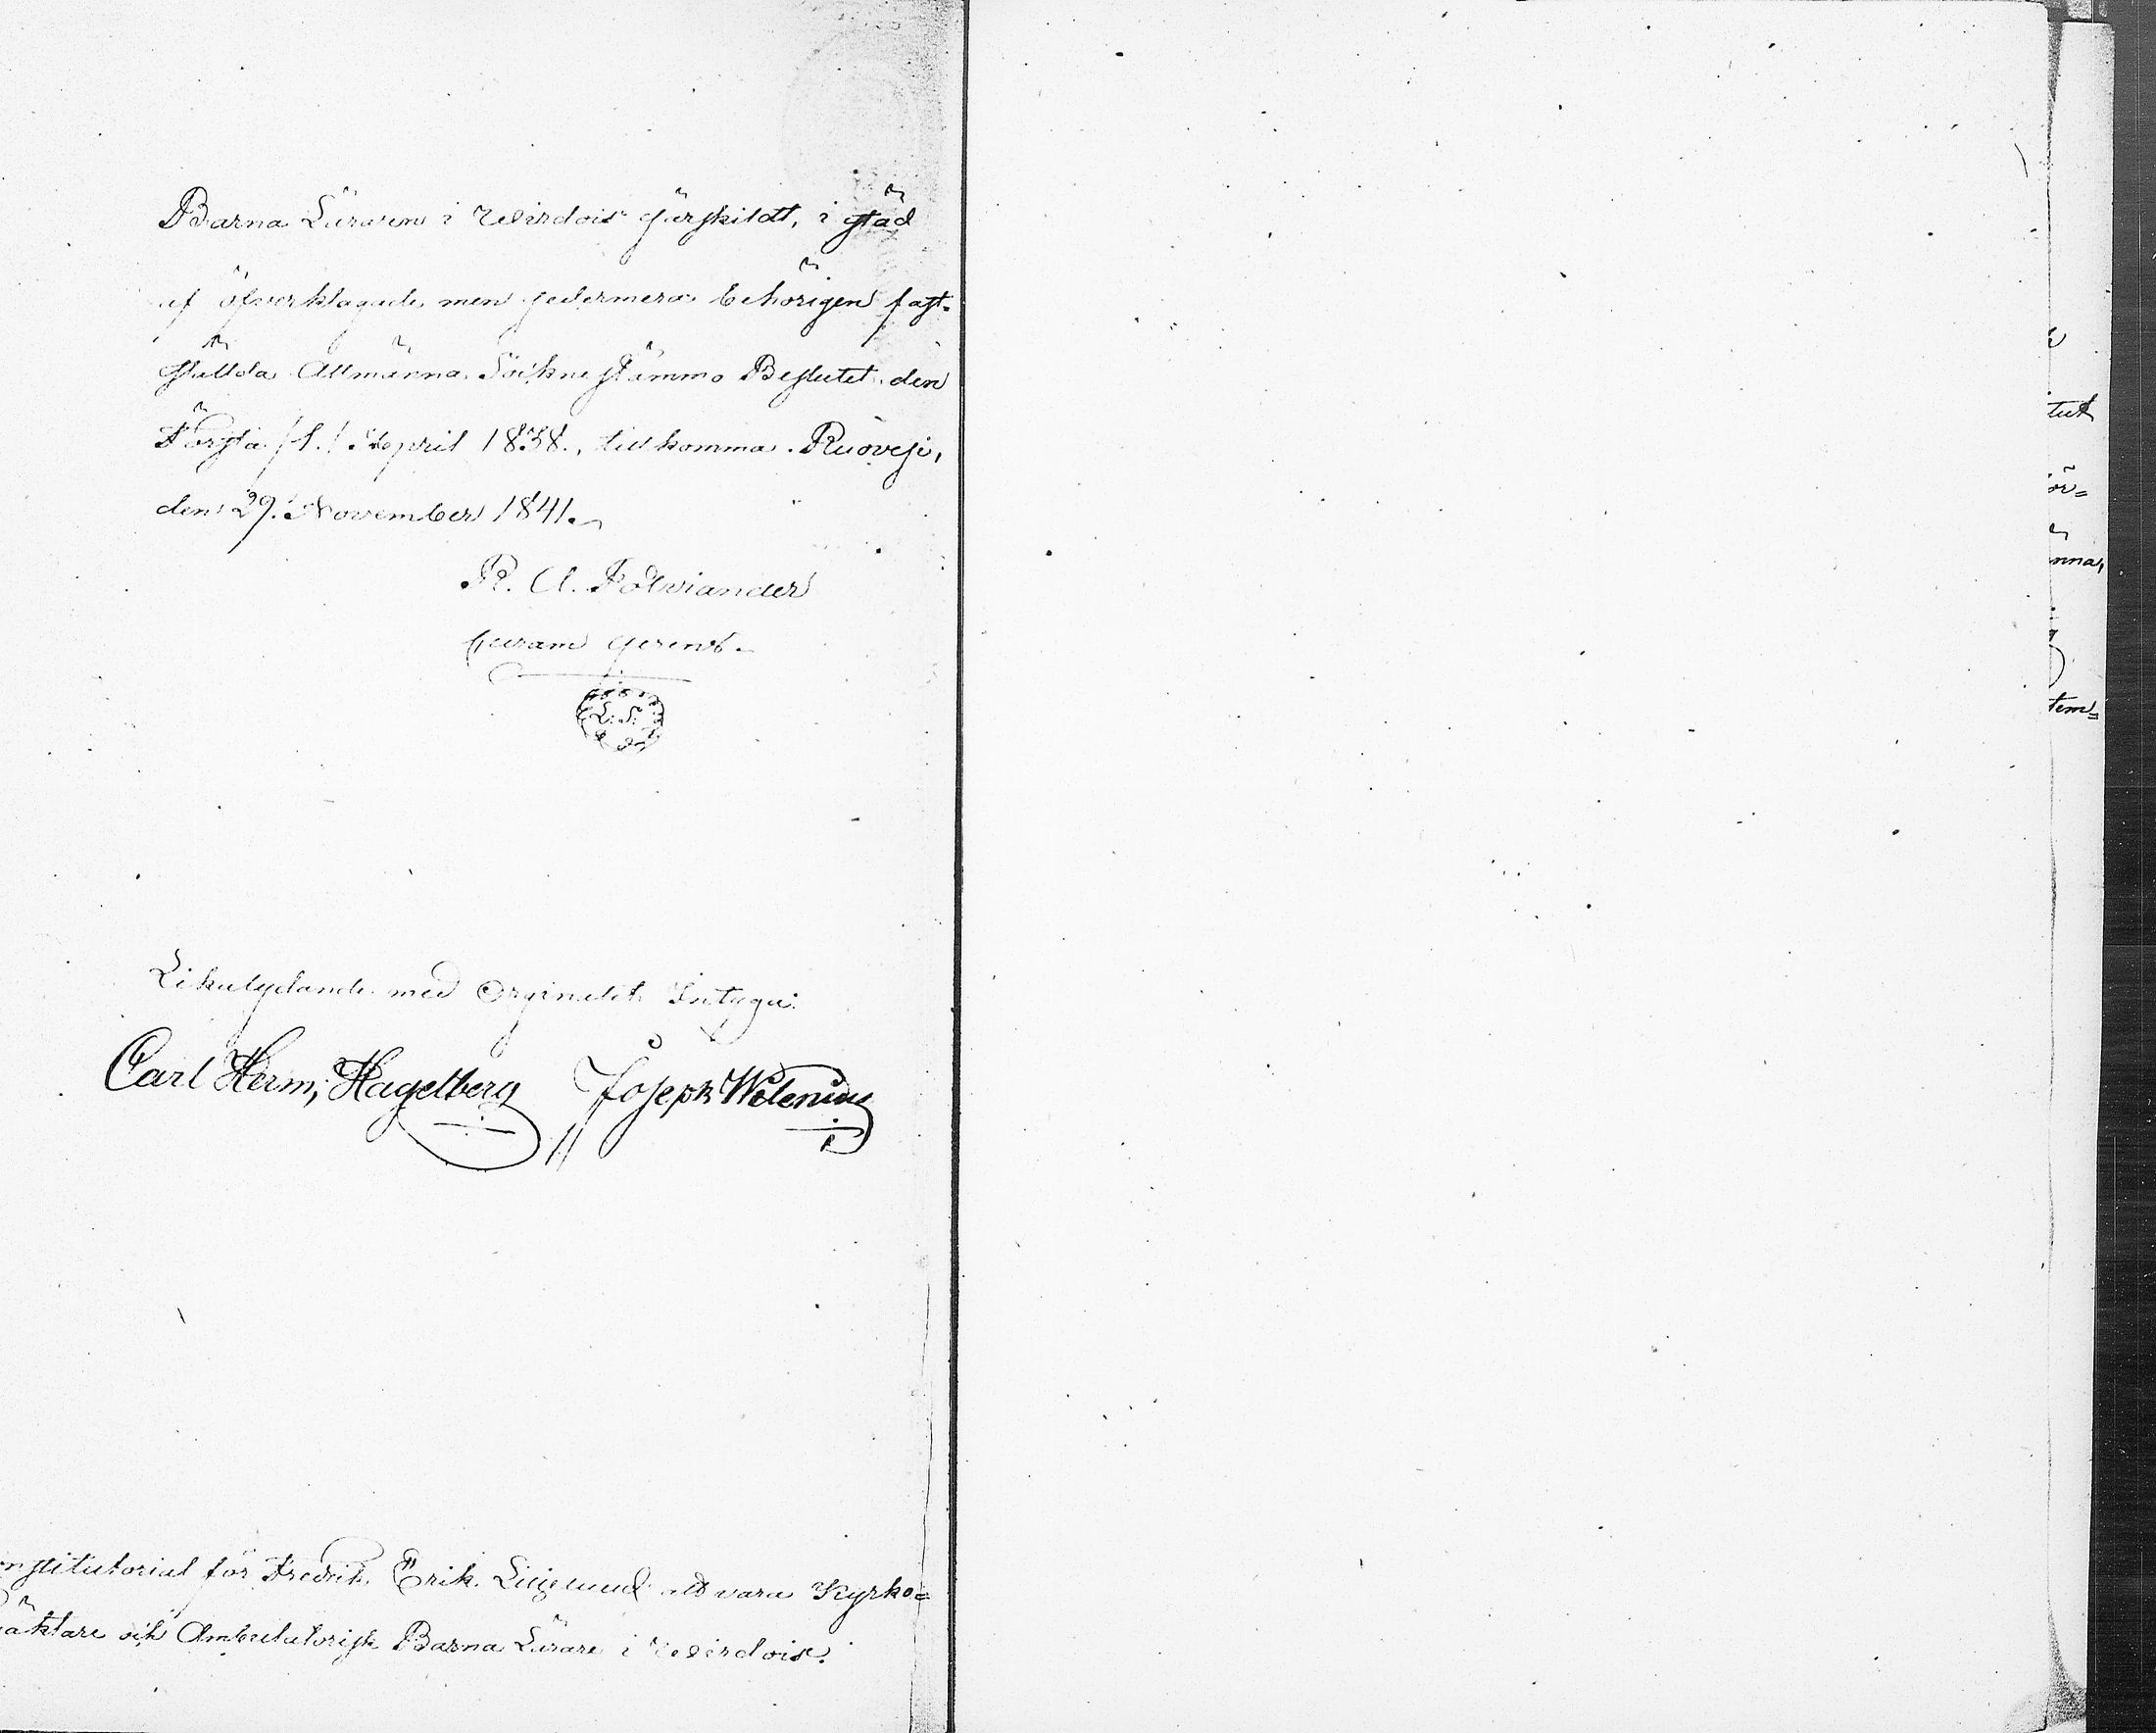 Barna Läraren i Wirdois särskildt, i stöd
af öfverklagade men sedermera behörigen fast-
ställda Allmänna Sockne Stämmo Beslutet den
Första /1./ April 1838., tillkomma. Ruovesi,
den 29. November 1841.
R. A. Polviander
Curam gerens.
L. S.
Likalydande med Orginalet Intyga:
Carl Herm; Hagelberg Joseph Welenius
onstitutorial för Fredrik Erik Liljelund att vara Kyrko=
äktare och Ambulatorisk Barna Lärare i Wirdois.
tut
ör=
änna,
tem=